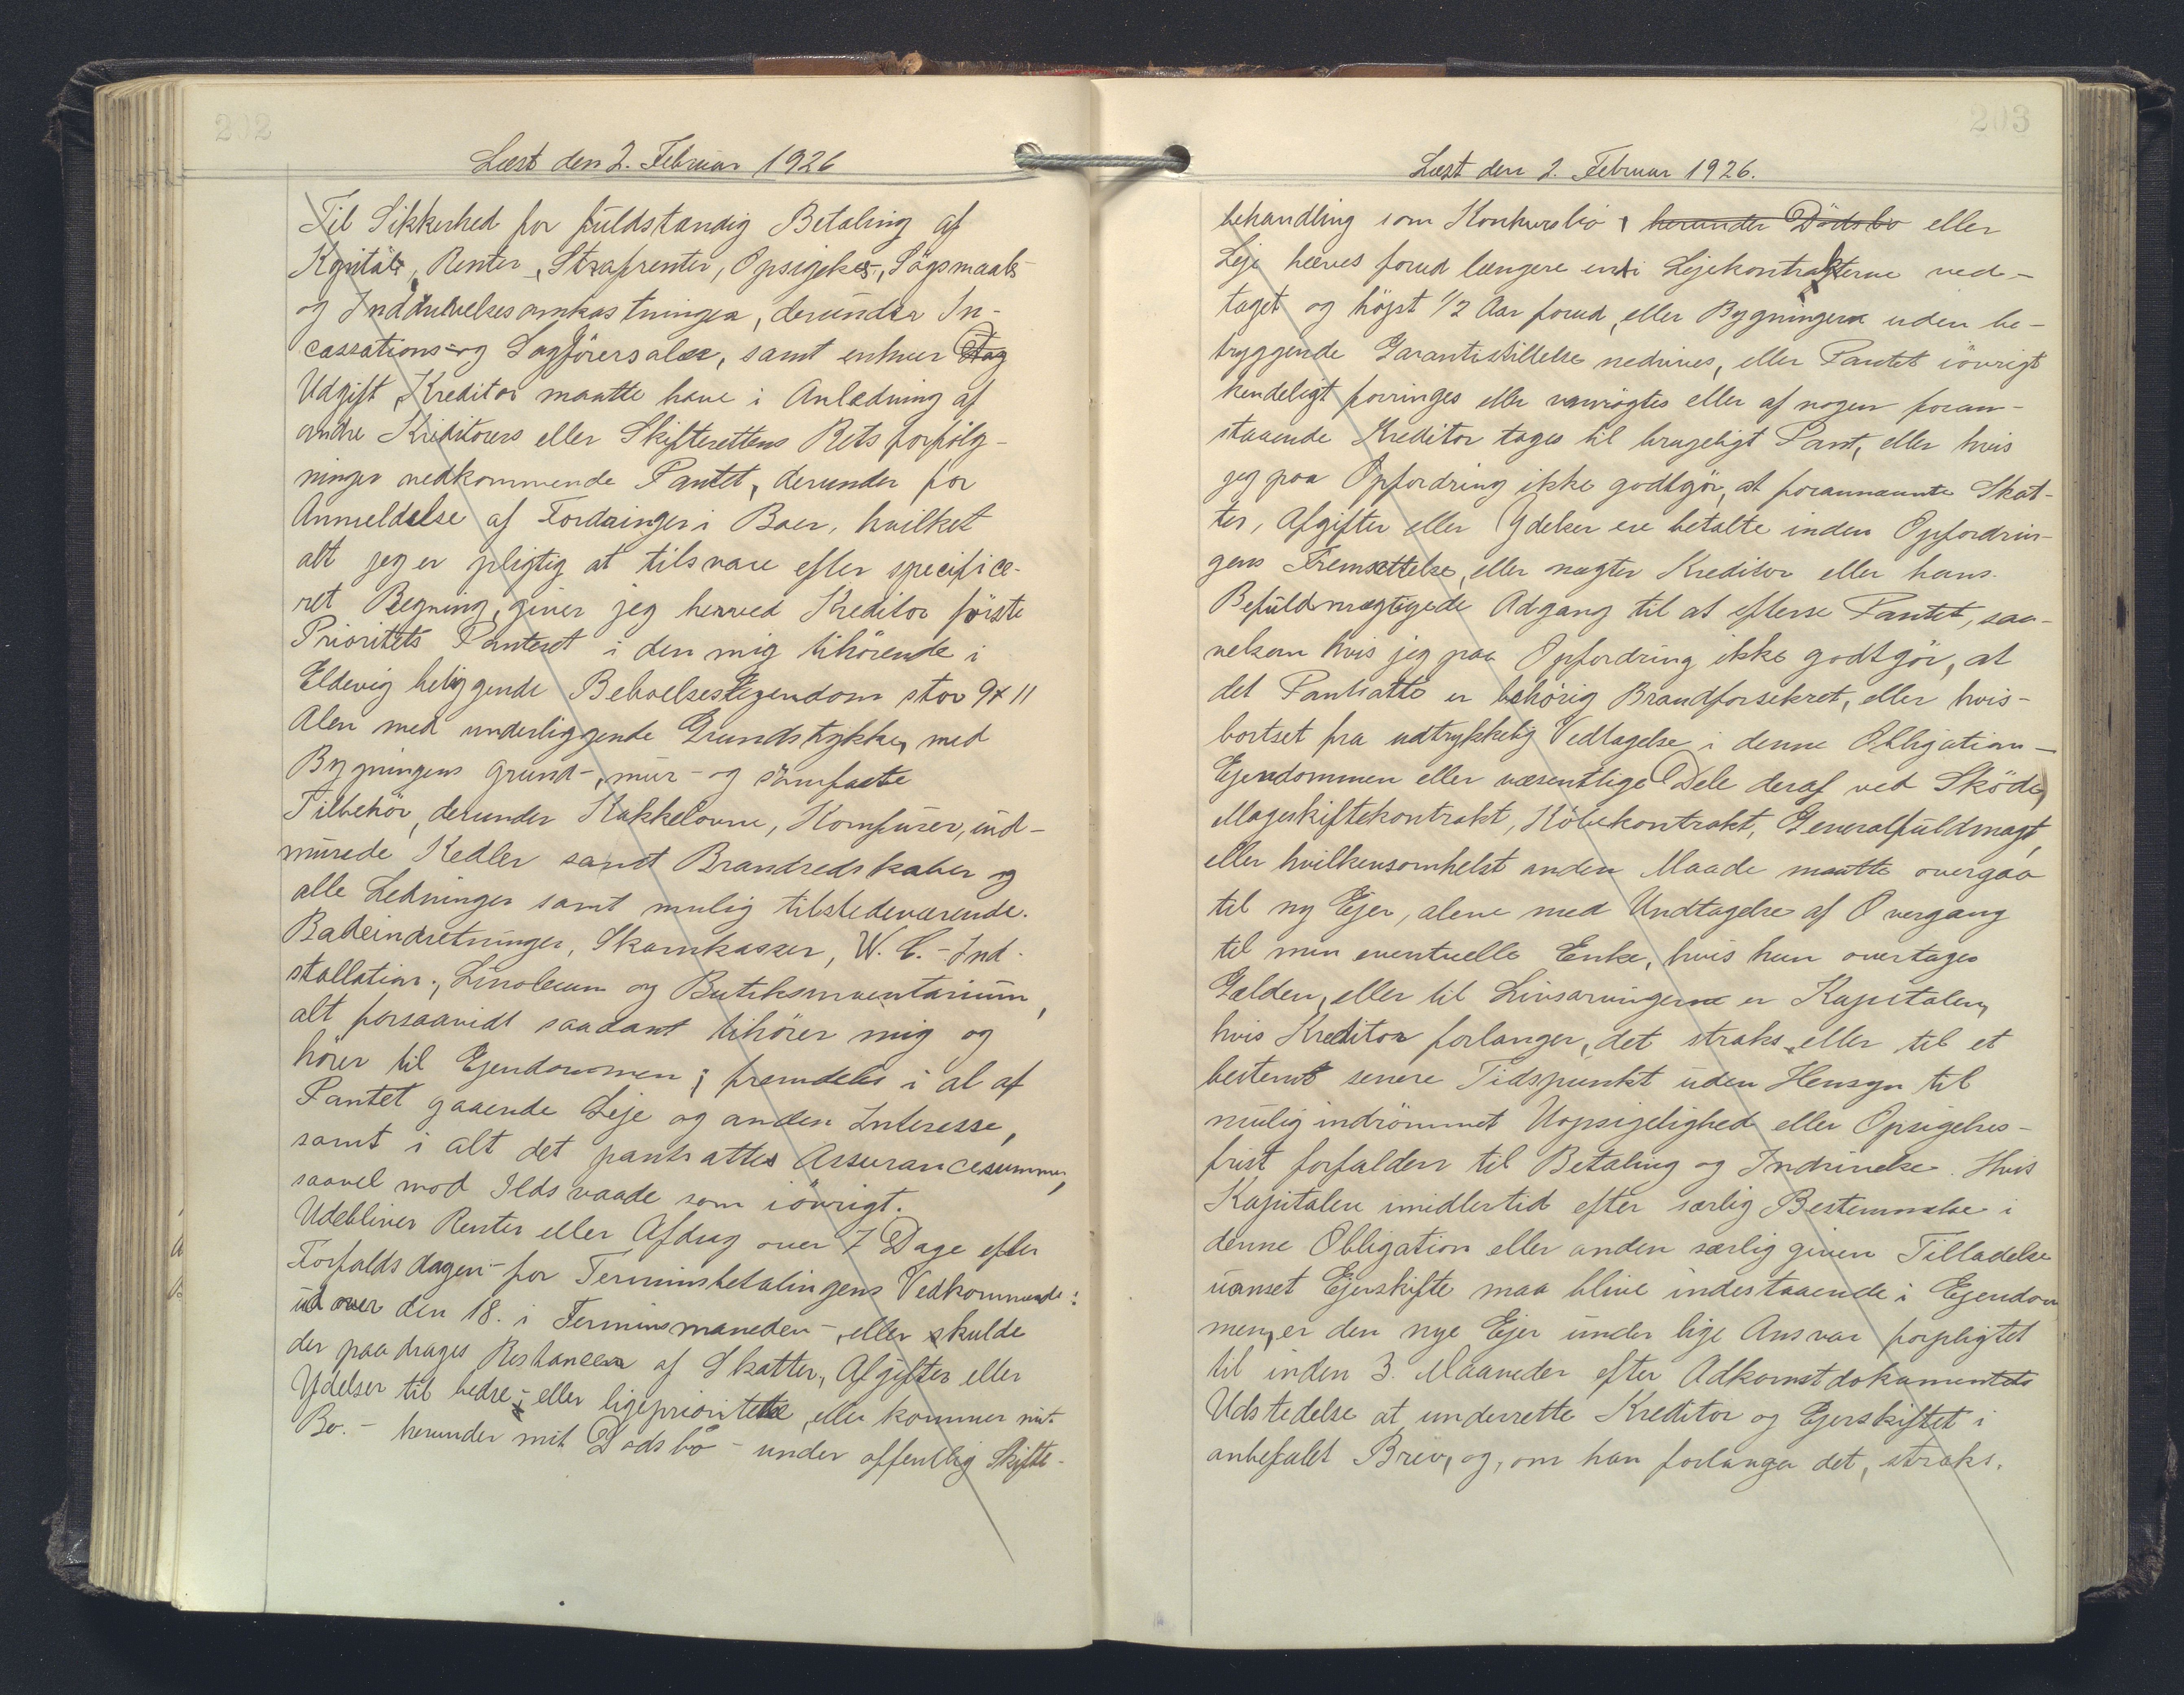 202
Læst den 2. Februar 1926
Til Sikkerhed for fuldstændig Betaling af
Kapital, Renter, Strafrenter, Opsigelses-, Søgsmaals-
og Inddrivelsesomkostninger, derunder In-
cassations- og Sagførersalær, samt enhver
Udgift, Kreditor maatte have i Anledning af
andre Kreditorers eller Skifterettens Retsforfølg-
ninger vedkommende Pantet, derunder for
Anmeldelse af Fordringer i Boer, hvilket
alt jeg er pligtig at tilsvare efter specifice-
ret Regning, giver jeg herved Kreditor første
Prioritets Panteret i den mig tilhørende i
Eldevig beliggende Beboelsesejendom stor 9 x 11
Alen med underliggende Grundstykke, med
Bygningens grund-, mur- og sømfaste
Tilbehör, derunder Kakkelovne, Komfurer, ind-
murede Kedler samt Brandredskaber og
alle Ledninger samt mulig tilstedeværende
Badeindretninger, Skarnkasser, W. C.-Ind-
stallation, Linoleum og Butiksinventarium,
alt forsaavidt saadant tilhører mig og
hører til Ejendommen; fremdeles i al af
Pantet gaaende Leje og anden Interesse,
samt i alt det pantsattes Assurancesummer,
saavel mod Ildsvaade som iövrigt.
Udebliver Renter eller Afdrag over 7 Dage efter
Forfaldsdagen - for Terminsbetalingens Vedkommende:
ud over den 18. i Terminsmaneden -, eller skulde
der paadrages Restancer af Skatter, Afgifter eller
Ydelser til bedre- eller ligeprioritet, eller kommer mit
Bo. - herunder mit Dødsbo - under offentlig Skifte-
203
Læst den 2. Februar 1926.
behandling som Konkursbo, herunder Dødsbo eller
Leje hæves forud længere end i Lejekontrakterne ved-
taget og højst 1/2 Aar forud, eller Bygningerne uden be-
tryggende Garantistillelse nedrives, eller Pantet iövrigt
kendeligt forringes eller vanrögtes eller af nogen foran-
staaende Kreditor tages til brugeligt Pant, eller hvis
jeg paa Opfordring ikke godtgör, at forannævnte Skat-
ter, Afgifter eller Ydelser ere betalte inden Opfordrin-
gens Fremsættelse, eller nægter Kreditor eller hans
Befuldmægtigede Adgang til at efterse Pantet, saa-
velsom hvis jeg paa Opfordring ikke godtgör, at
det Pantsatte er behörig Brandforsikret, eller hvis -
bortset fra udtrykkelig Vedtagelse i denne Obligation -
Ejendommen eller væsentlige Dele deraf ved Sköde,
Mageskiftekontrakt, Köbekontrakt, Generalfuldmagt,
eller hvilkensomhelst anden Maade maatte overgaa
til ny Ejer, alene med Undtagelse af Overgang
til min eventuelle Enke, hvis hun overtager
Gælden, eller til Livsarvingerne er Kapitalen,
hvis Kreditor forlanger, det straks, eller til et
bestemt senere Tidspunkt uden Hensyn til
mulig indrömmet Uopsigelighed eller Opsigelses-
frist forfalden til Betaling og Indrivelse. Hvis
Kapitalen imidlertid efter særlig Bestemmelse i
denne Obligation eller anden særlig given Tilladelse
uanset Ejerskifte maa blive indestaaende i Ejendom
men, er den nye Ejer under lige Ansvar forpligtet
til inden 3. Maaneder efter Adkomstdokumentets
Udstedelse at underrette Kreditor og Ejerskiftet i
anbefalet Brev, og, om han forlanger det, straks.